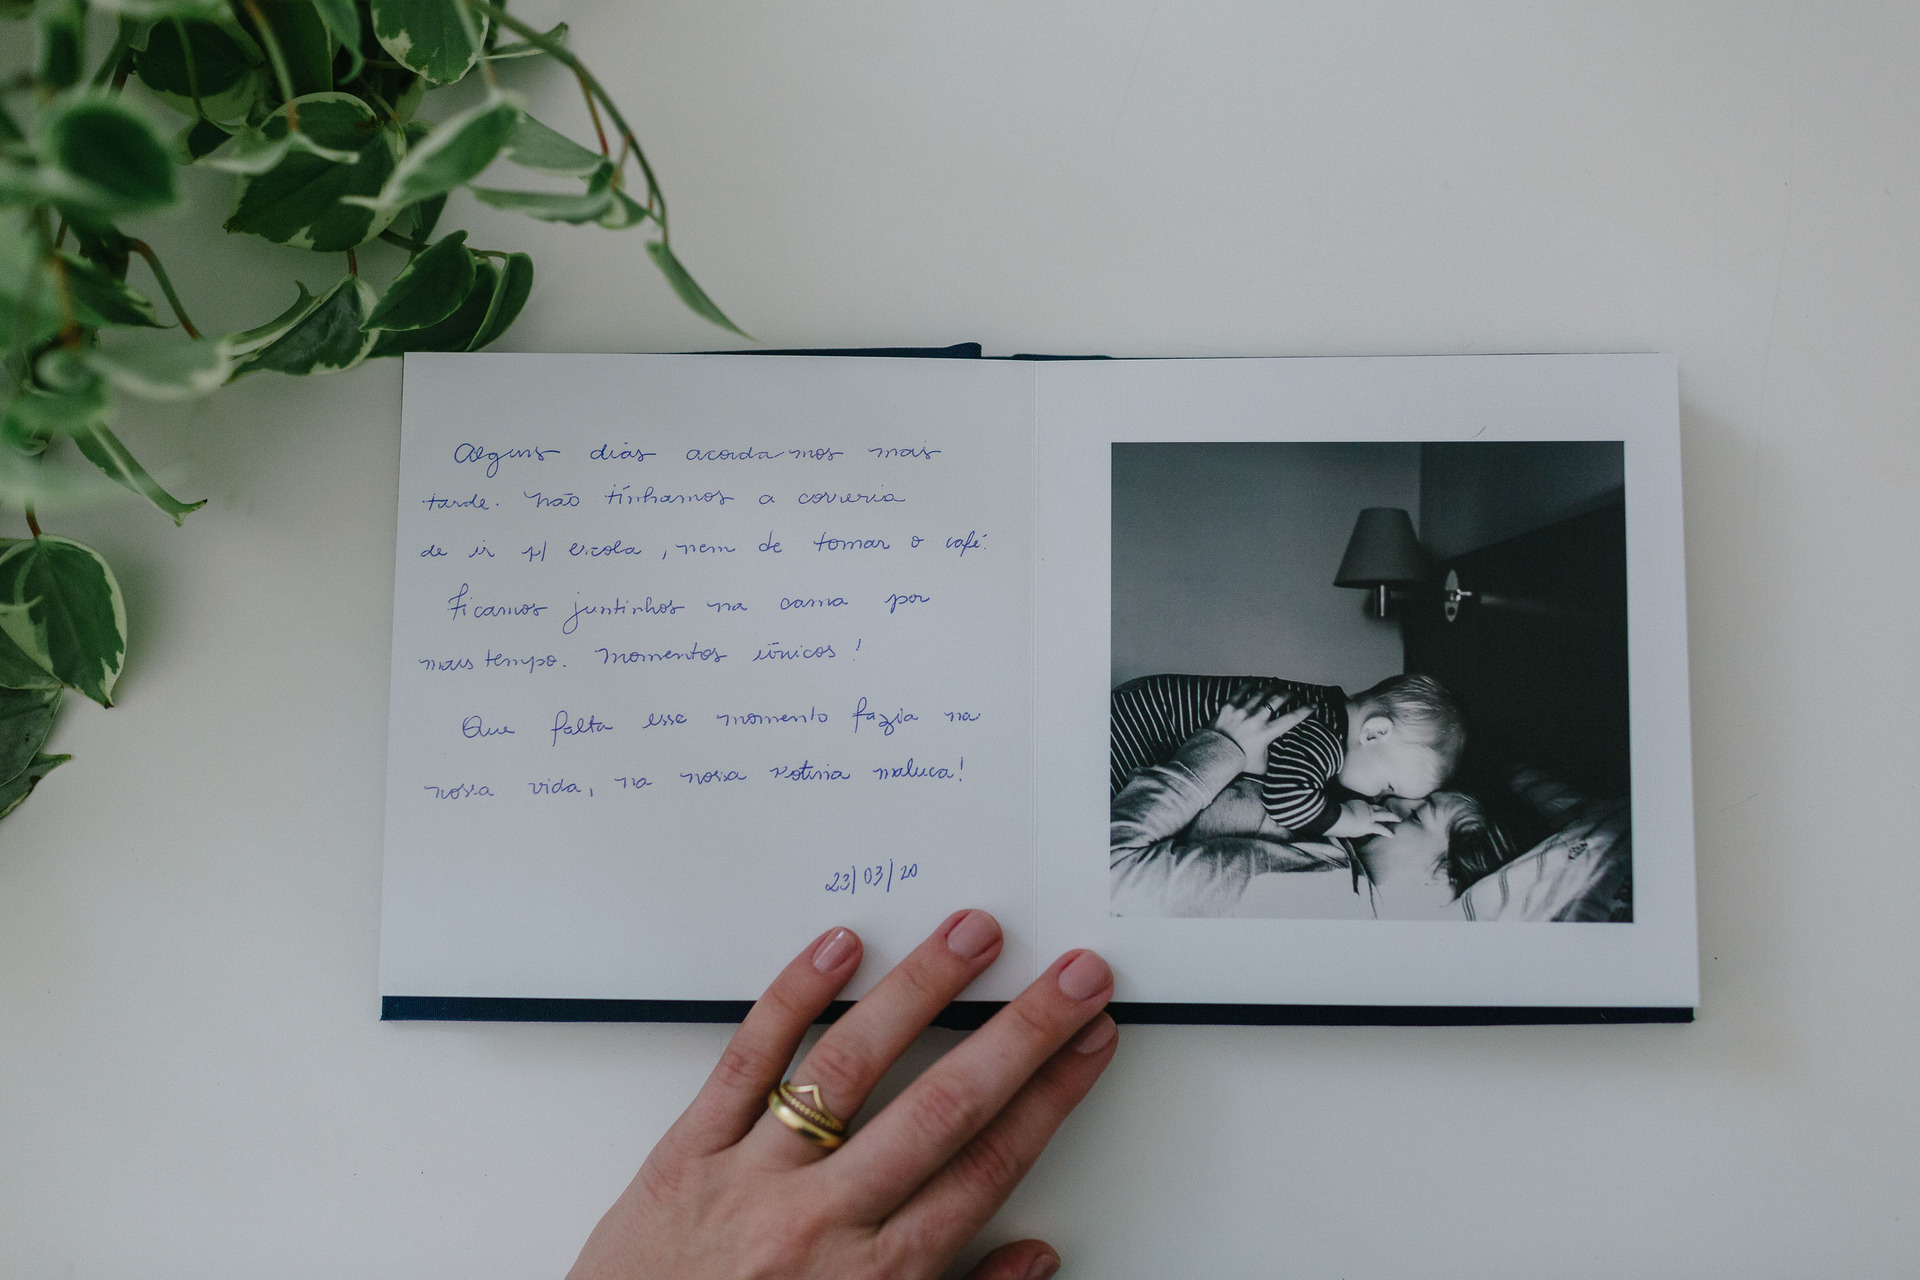 Alguns dias acordamos mais
tarde. Não tínhamos a correria
de ir p/ escola, nem de tomar o café.
Ficamos juntinhos na cama por
mais tempo. Momentos únicos!
Que falta esse momento fazia na
nossa vida, na nossa rotina maluca!
23/03/20